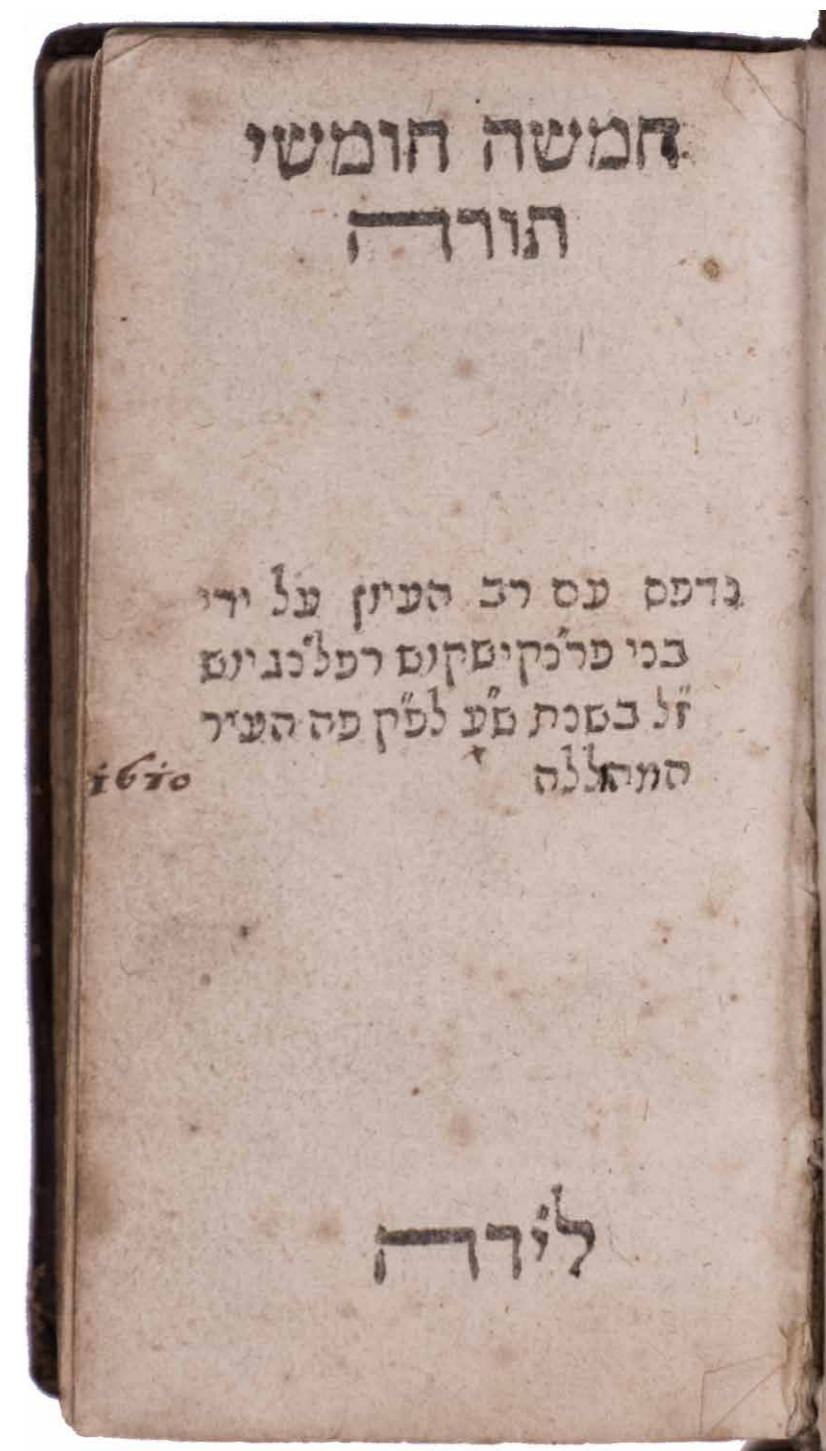 חמשה חומשי
תורה
נדפס עם רב העיון על ידי
בני פר'נקישקוס רפל'נגיוס
ז"ל בשנת ש"ע לפ"ק פה העיר
המהללה
1610
לידה